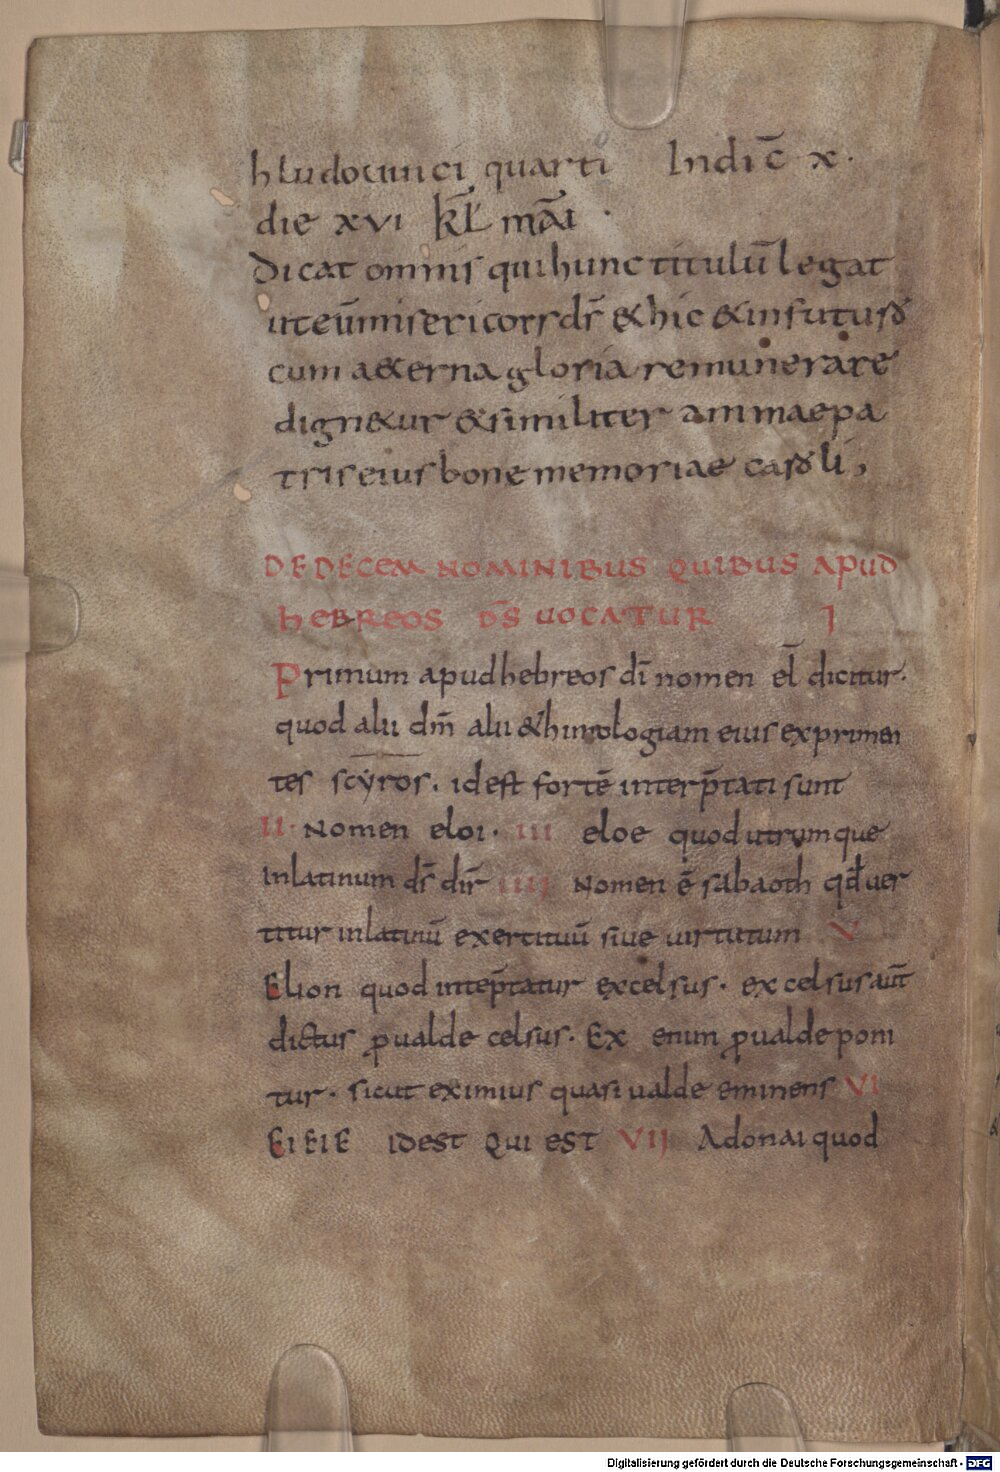 hludouuici quarti Indic̄ x·
die xvi kl̄ māi ·
Dicat omnis qui hunc titulū legat
ut eū misericors ds̄ & hic & in futuro
cum a&erna gloria remunerare
dign&ur & similiter animae pa
tris eius bone memoriae caroli,
DE DECEM NOMINIBUS QUIBUS APUD
HEBREOS DS̄ UOCATUR I
Primum apud hebreos dī nomen el̄ dicitur.
quod alii dm̄ alii &himologiam eius exprimen
tes scyros. id est fortē interp̄tati sunt
II· Nomen eloi· III eloe quod utrumque
In latinum ds̄ dir̄ IIII Nomen ē sabaoth qđ uer
titur in latinū exercituū siue uirtutum V
Elion quod intep̄tatur excelsus· excelsus aūt
dictus ꝓ ualde celsus· Ex enim ꝓ ualde poni
tur· sicut eximius quasi ualde eminens VI
EIEIE IDEST QUI EST VII Adonai quod
Digitalisierung gefördert durch die Deutsche Forschungsgemeinschaft - DFG